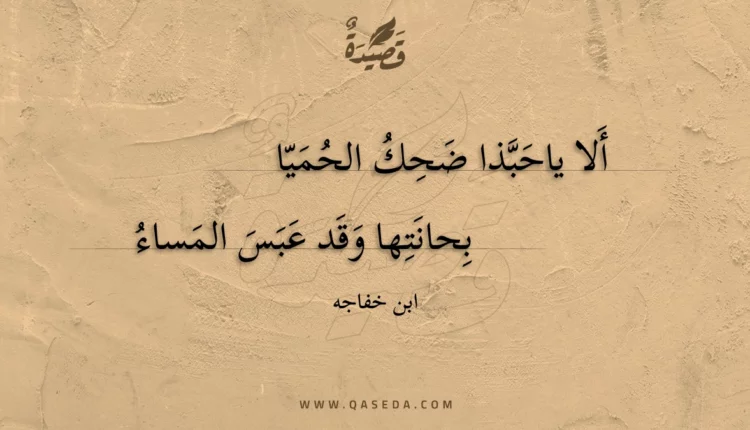 قَصِيدَةٌ
أَلا ياحَبَّذا ضَحِكُ الحُمَيّا
بِحانَتِها وَقَد عَبَسَ المَساءُ
ابن خفاجه
WWW.QASEDA.COM